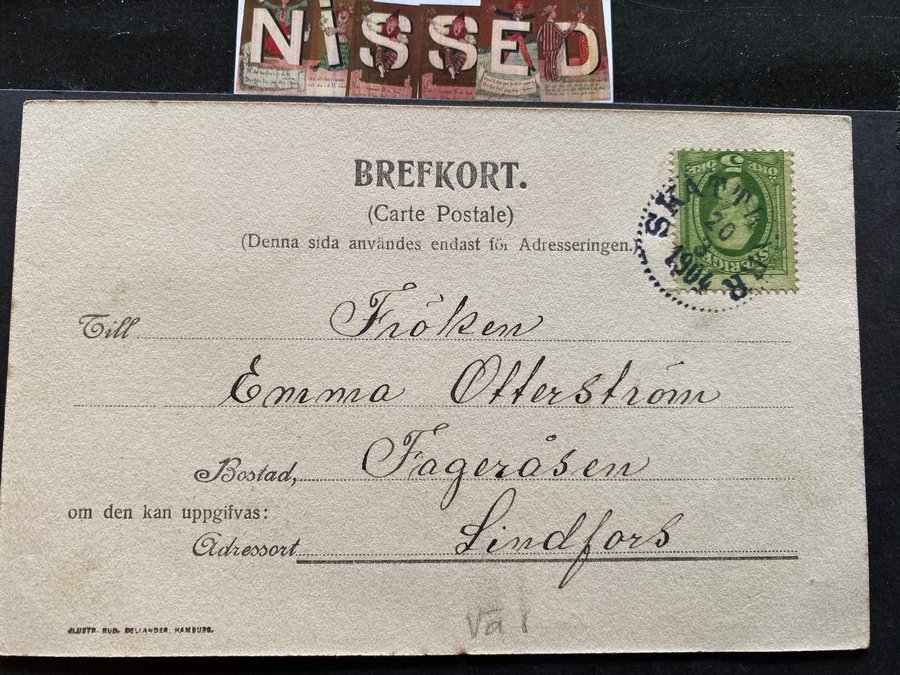 NiSSED
BREFKORT.
(Carte Postale)
(Denna sida användes endast för Adresseringen.)
SKATTK R
20
1904
Till Fröken
Emma Otterström
Bostad, Fageråsen
om den kan uppgifvas:
Adressort Lindfors
ILLUSTR. RUD. BELLANDER, HAMBURG.
Vä